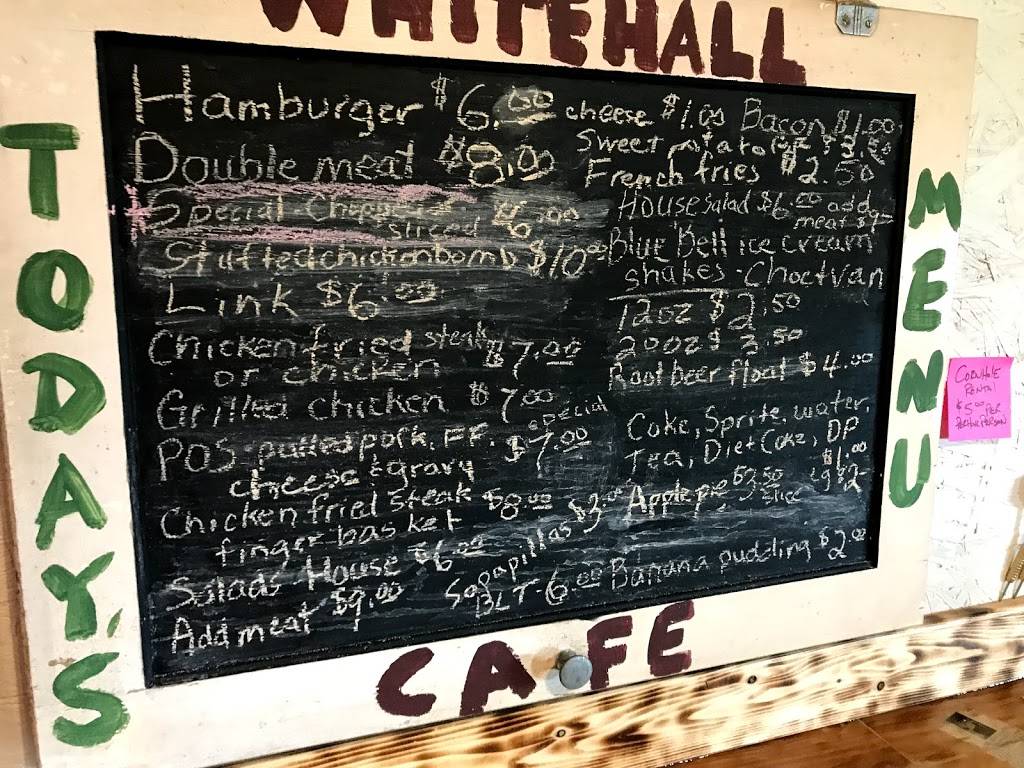 WHITEHALL
TODAY'S
MENU
Hamburger $6.00
Double meat $8.00
Special-Chopped
sliced $6.00
Stuffed chicken bomb $10.00
Link $6.00
Chicken fried steak
or chicken $7.00
Grilled chicken $7.00
POS-pulled pork, FF,
cheese & gravy
special
$7.00
Chicken fried steak
finger basket $8.00
Salads House $6.00
Add meat $9.00
Sopapillas $3.00
BLT-6.00
cheese $1.00 Bacon $1.00
Sweet potato $3.50
French fries $2.50
House salad $6.00 add
meat $9
Blue Bell ice cream
shakes-Choctvan
12oz $2.50
20oz $3.50
Root beer float $4.00
Coke, Sprite, water,
Tea, Diet Coke, DP
$1.00
Apple pie $3.50
slice
Banana pudding $2.00
CAFE
CORNHOLE
RENTAL
$5.00 PER
PERSON